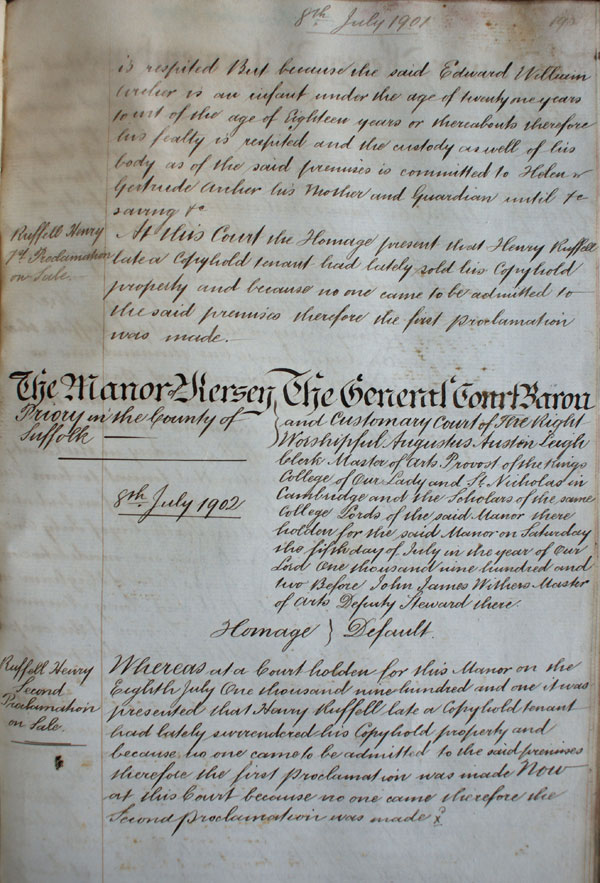 8th July 1901
is respited But because the said Edward William
Archer is an infant under the age of twenty one years
to wit of the age of Eighteen years or thereabouts therefore
his fealty is respited and the custody as well of his
body as of the said premises is committed to Helen
Gertrude Archer his Mother and Guardian until &c
saving &c
Ruffell Henry
1st Proclamation
on Sale.
At this Court the Homage present that Henry Ruffell
late a Copyhold tenant had lately sold his Copyhold
property and because no one came to be admitted to
the said premises therefore the first proclamation
was made.
The Manor of Kersey
Priory in the County of
Suffolk
8th July 1902
The General Court Baron
and Customary Court of The Right
Worshipful Augustus Austen Leigh
Clerk Master of Arts Provost of the Kings
College of Our Lady and St. Nicholas in
Cambridge and the Scholars of the same
College Lords of the said Manor there
holden for the said Manor on Saturday
the fifth day of July in the year of Our
Lord One thousand nine hundred and
two Before John James Withers Master
of Arts Deputy Steward there.
Homage } Default.
Ruffell Henry
Second
Proclamation
on Sale.
Whereas at a Court holden for this Manor on the
Eighth July One thousand nine hundred and one it was
presented that Harry Ruffell late a Copyhold tenant
had lately surrendered his Copyhold property and
because no one came to be admitted to the said premises
therefore the first proclamation was made Now
at this Court because no one came therefore the
Second proclamation was made